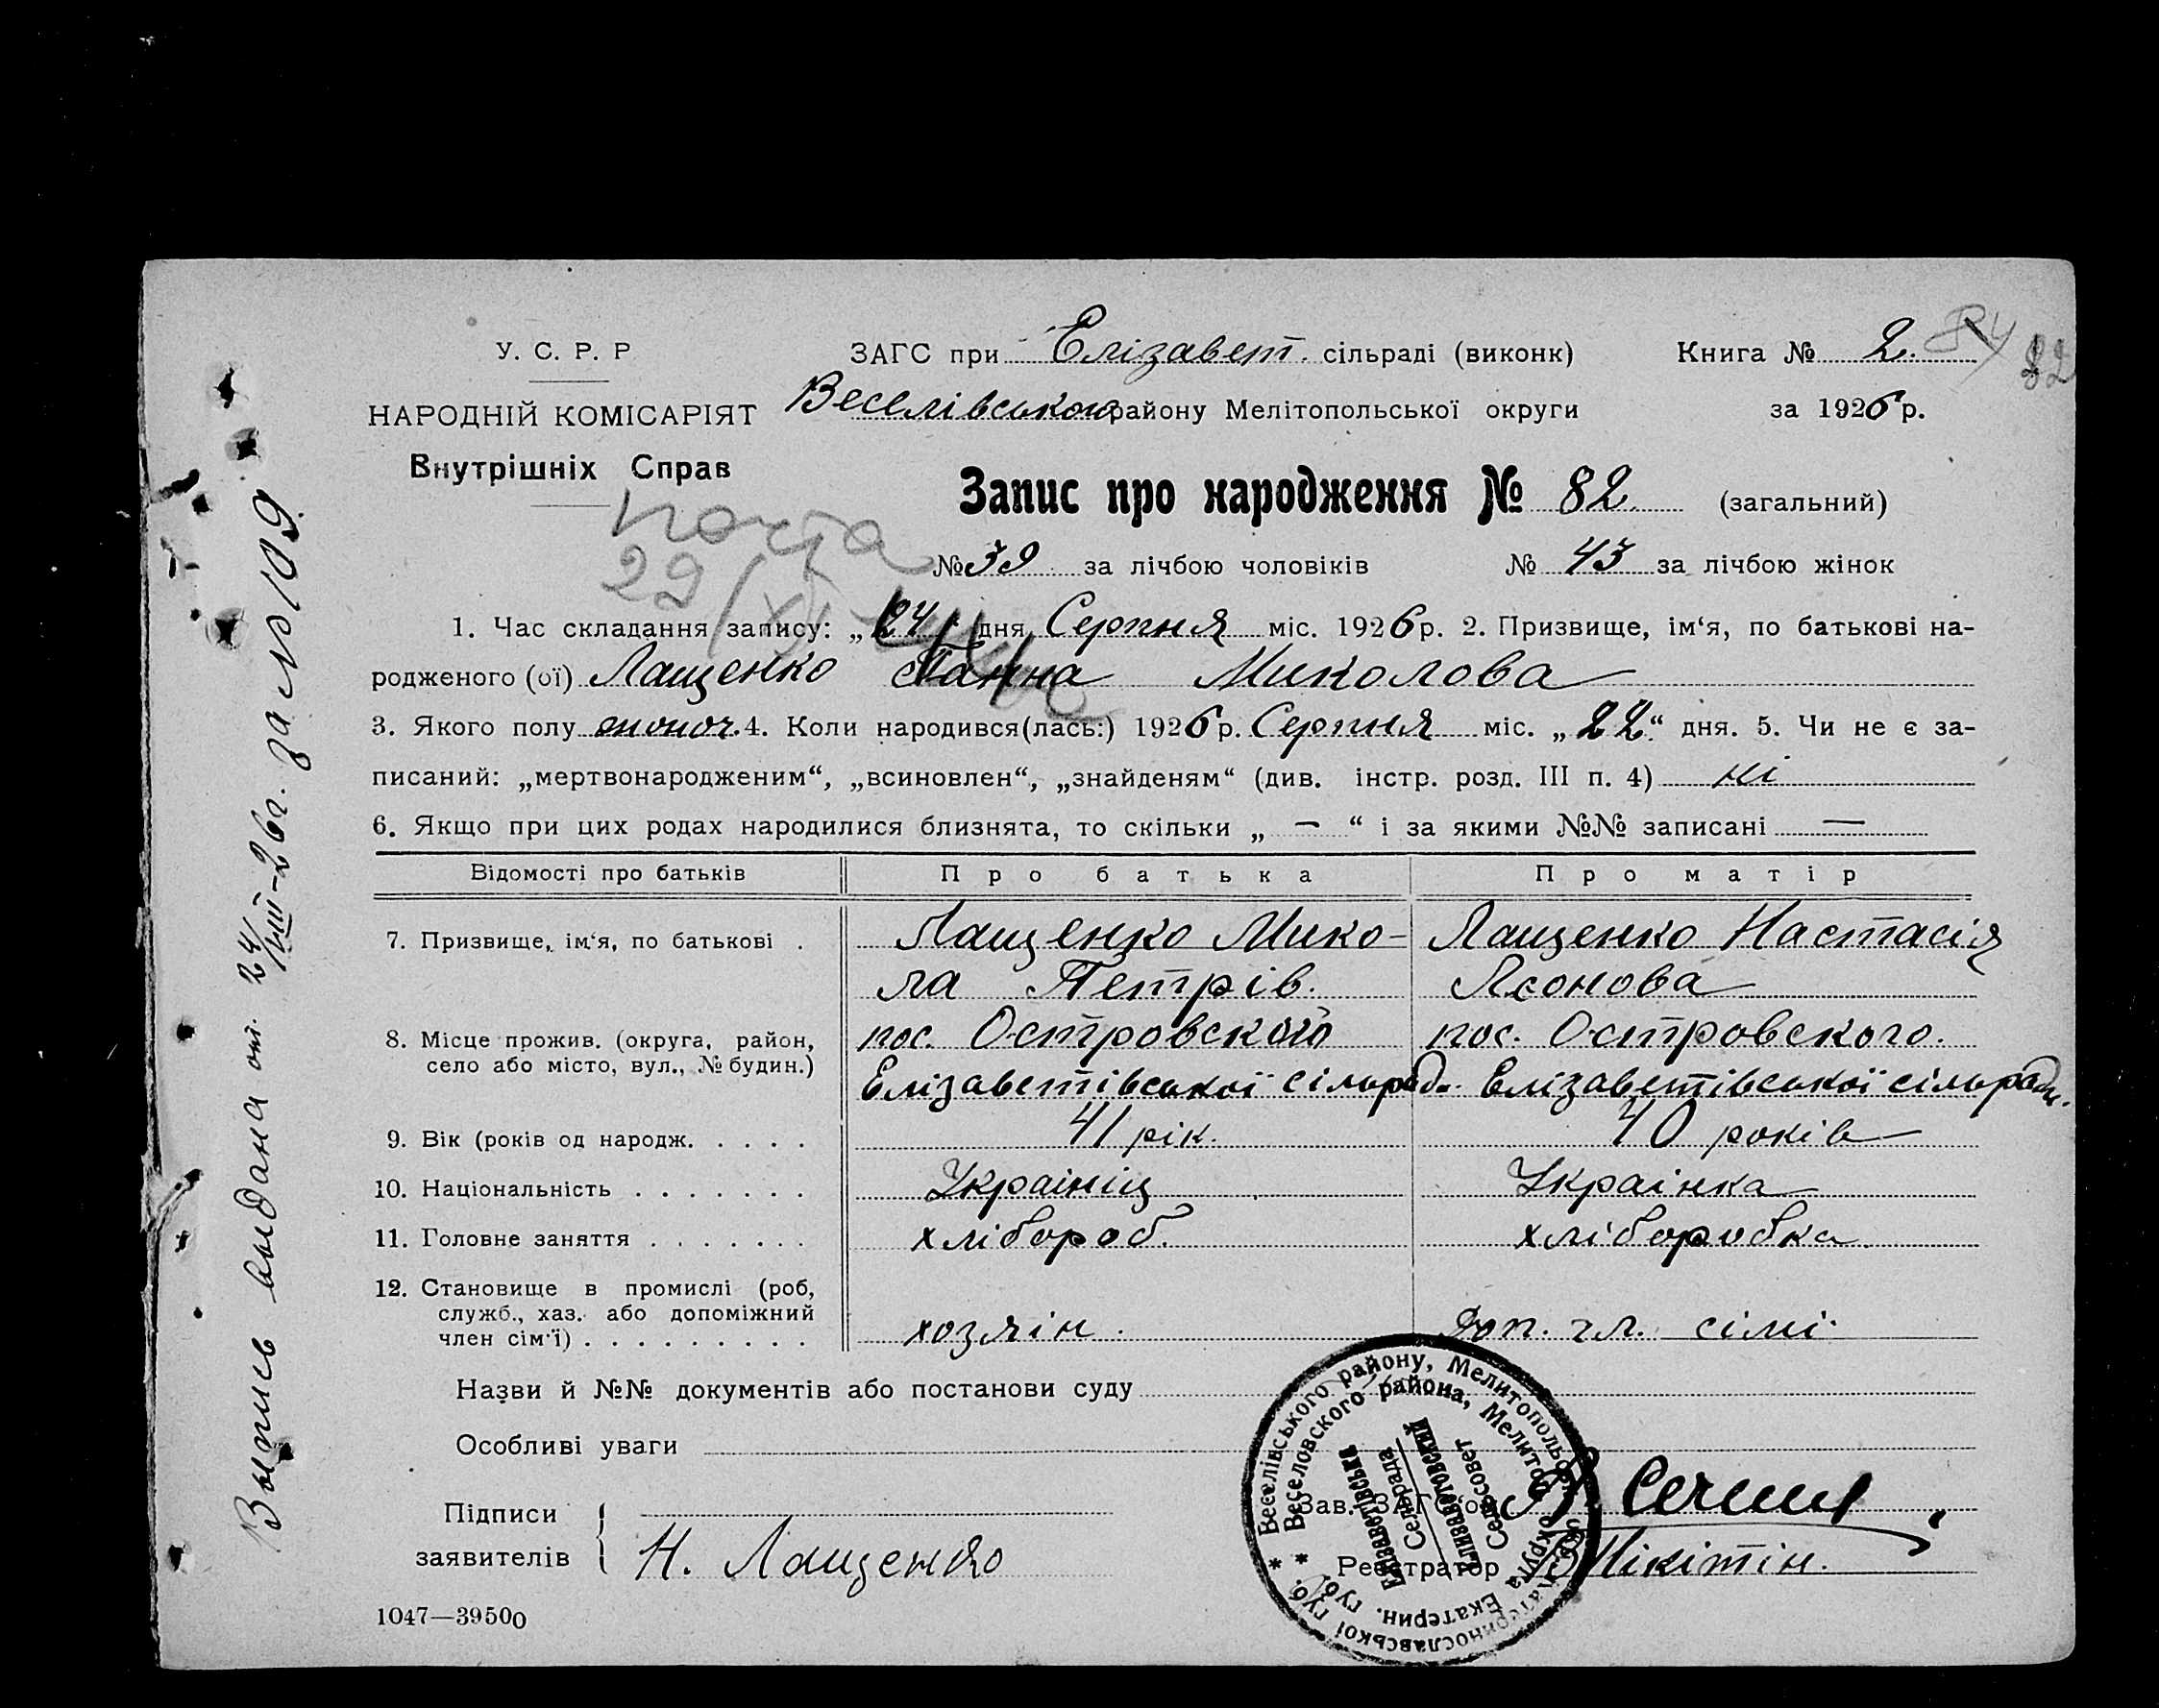 У. С. Р. Р
НАРОДНІЙ КОМІСАРІЯТ
Внутрішніх Справ
ЗАГС при Елізавет. сільраді (виконк)
Веселівського району Мелітопольської округи
Книга № 2.
за 1926 р.
82
Запис про народження № 82. (загальний)
№ 39 за лічбою чоловіків № 43 за лічбою жінок
почта
29/XI
1. Час складання запису: „24" дня Серпня міс. 1926 р. 2. Призвище, ім'я, по батькові на-
родженого (ої) Лащенко Ганна Миколова
3. Якого полу жіноч. 4. Коли народився(лась:) 1926 р. Серпня міс. „22" дня. 5. Чи не є за-
писаний: „мертвонародженим", „всиновлен", „знайденям" (див. інстр. розд. III п. 4) ні
6. Якщо при цих родах народилися близнята, то скільки „ — " і за якими №№ записані —
Відомості про батьків Про батька Про матір
7. Призвище, ім'я, по батькові . Лащенко Мико- Лащенко Настасія
ла Петрів. Лєонова
8. Місце прожив. (округа, район, пос. Островского пос. Островского.
село або місто, вул., № будин.) Елізаветівської сільради. Елізаветівської сільради.
9. Вік (років од народж. . . . . 41 рік. 40 років
10. Національність . . . . . . . Украініц Украінка
11. Головне заняття . . . . . . . хлібороб. хліборобка
12. Становище в промислі (роб,
служб., хаз. або допоміжний
член сім'ї) . . . . . . . . . хозяін. Доп. чл. сімі.
Назви й №№ документів або постанови суду
Особливі уваги
Підписи
заявителів Н. Лащенко
Зав. ЗАГС'ом
Реєстратор В Нікітін.
1047—39500
Выпись выдана от. 24/VIII-26г. за №109
* Веселівського району, Мелитопольськ. окр. Катеринославської губ.
* Веселовского района, Мелитоп. округа Екатерин. губ.
Елизаветівська
Селрада
Елизаветовский
Сельсовет